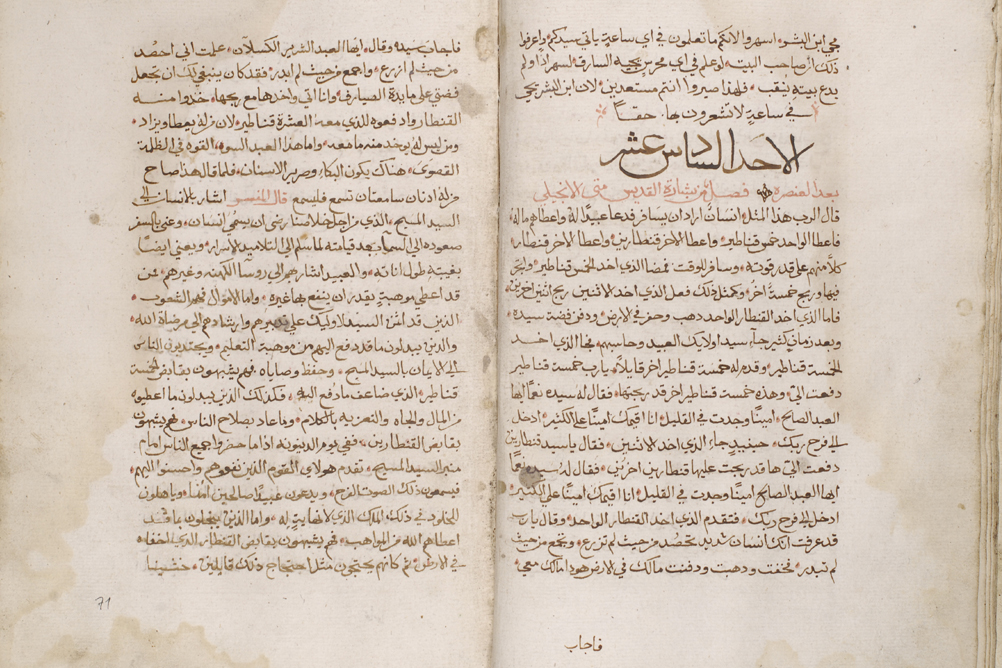 مجي ابن البشر، اسهروا لانكم ما تعلمون في اي ساعةٍ ياتي سيدكم واعرفوا
ذلك ان صاحب البيت لو علم في اي محرسٍ يجيه السارق لسهر اذًا ولم
يدع بيته ينقب فلهذا صيروا انتم مستعدين لان ابن البشر يجي
في ساعةٍ لا تشعرون بها حقًا
الاحد السادس عشر
بعد العنصره فصل من بشارة القديس متى الانجيلي
قال الرب هذا المثل انسانٌ اراد ان يسافر فدعا عبيدًا له واعطاهم ماله
فاعطا الواحد خمس قناطير واعطا الاخر قنطارين واعطا الاخر قنطار
كلاً منهم على قدر قوته وسافر للوقت فمضا الذي اخد الخمس قناطير واتجر
فيها وربح خمسةً اخر وكمثل ذلك فعل الذي اخد الاثنين ربح اثنين اخرين
فاما الذي اخد القنطار الواحد دهب وحفر في الارض ودفن فضة سيده
وبعد زمانٍ كثير جاء سيد اولايك العبيد وحاسبهم فجا الذي اخد
الخمسة قناطير وقدم له خمسة قناطير اخر قايلاً يا رب خمسة قناطير
دفعت الي وهذه خمسة قناطير اخر قد ربحتها فقال له سيده نعمًا ايها
العبد الصالح امينًا وجدت في القليل انا اقيمك امينًا على الكثير ادخل
الى فرح ربك حينيدٍ جاء الذي اخد الاثنين فقال يا سيد قنطارين
دفعت الي ها قد ربحت عليها قنطارين اخرين فقال له سيده نعمًا
ايها العبد الصالح امينًا وجدت في القليل انا اقيمك امينًا على الكثير
ادخل الى فرح ربك فتقدم الذي اخد القنطار الواحد وقال يا رب
قد عرفت انك انسان شديد تحصد من حيث لم تزرع وتجمع من حيث
لم تبدر فخفت ودهبت ودفنت مالك في الارض هودا مالك معي
فاجاب
فاجاب سيده وقال ايها العبد الشرير الكسلان علمت اني احصد
من حيث لم ازرع واجمع من حيث لم ابدر فقد كان ينبغي لك ان تجعل
فضتي على مايدة الصيارف وانا اتي واخدها مع ربحها خدوا منه
القنطار وادفعوه للذي معه العشرة قناطير لان من له يعطا ويزاد
ومن ليس له يوخد منه ما معه واما هذا العبد السوء القوه في الظلمة
القصوى هناك يكون البكاء وصرير الاسنان فلما قال هذا صاح
من له ادنان سامعتان تسمع فليسمع قال المفسر اشار بالانسان الى
السيد المسيح الذي من اجل خلاصنا رضي ان يسمى انسان وعنى بالسفر
صعوده الى السماء بعد قيامته لما سلم الى التلاميد الاسرار ويعني ايضًا
بغيبته طول اناته والعبيد اشار بهم الى روسا الكهنه وغيرهم ممن
قد اعطي موهبةٍ يقدر ان ينفع بها غيره واما الاموال فهم الشعوب
الذين قد امن السيد لاوليك على وارشادهم الى مرضاة الله
والذين يبدلون ما قد دفع اليهم من موهبة التعليم ويجتدبون الناس
الى الايمان بالسيد المسيح وحفظ وصاياه فهم يشبهون بقابض الخمسة
قناطير الذي ضاعف ما دفع اليه فكذلك الذين يبدلون ما اعطوه
من المال والجاه والتعزية بالكلام وما عاد بصلاح الناس فهم يشبهون
بقابض القنطارين ففي يوم الدينونه اذا ما حضروا جميع الناس امام
منبر السيد المسيح تقدم هولاي القوم الذين نفعوهم واحسنوا اليهم
فيسمعون ذلك الصوت الفرح ويدعون عبيدًا صالحين امنا ويأهلون
للخلود في ذلك الملك الذي لا نهاية له واما الذين يبخلون بما قد
اعطاهم الله من المواهب فهم يشبهون بقابض القنطار الذي اخفاه
في الارض ثم كانهم يحتجون مثل احتجاج ذلك قايلين خشينا
71